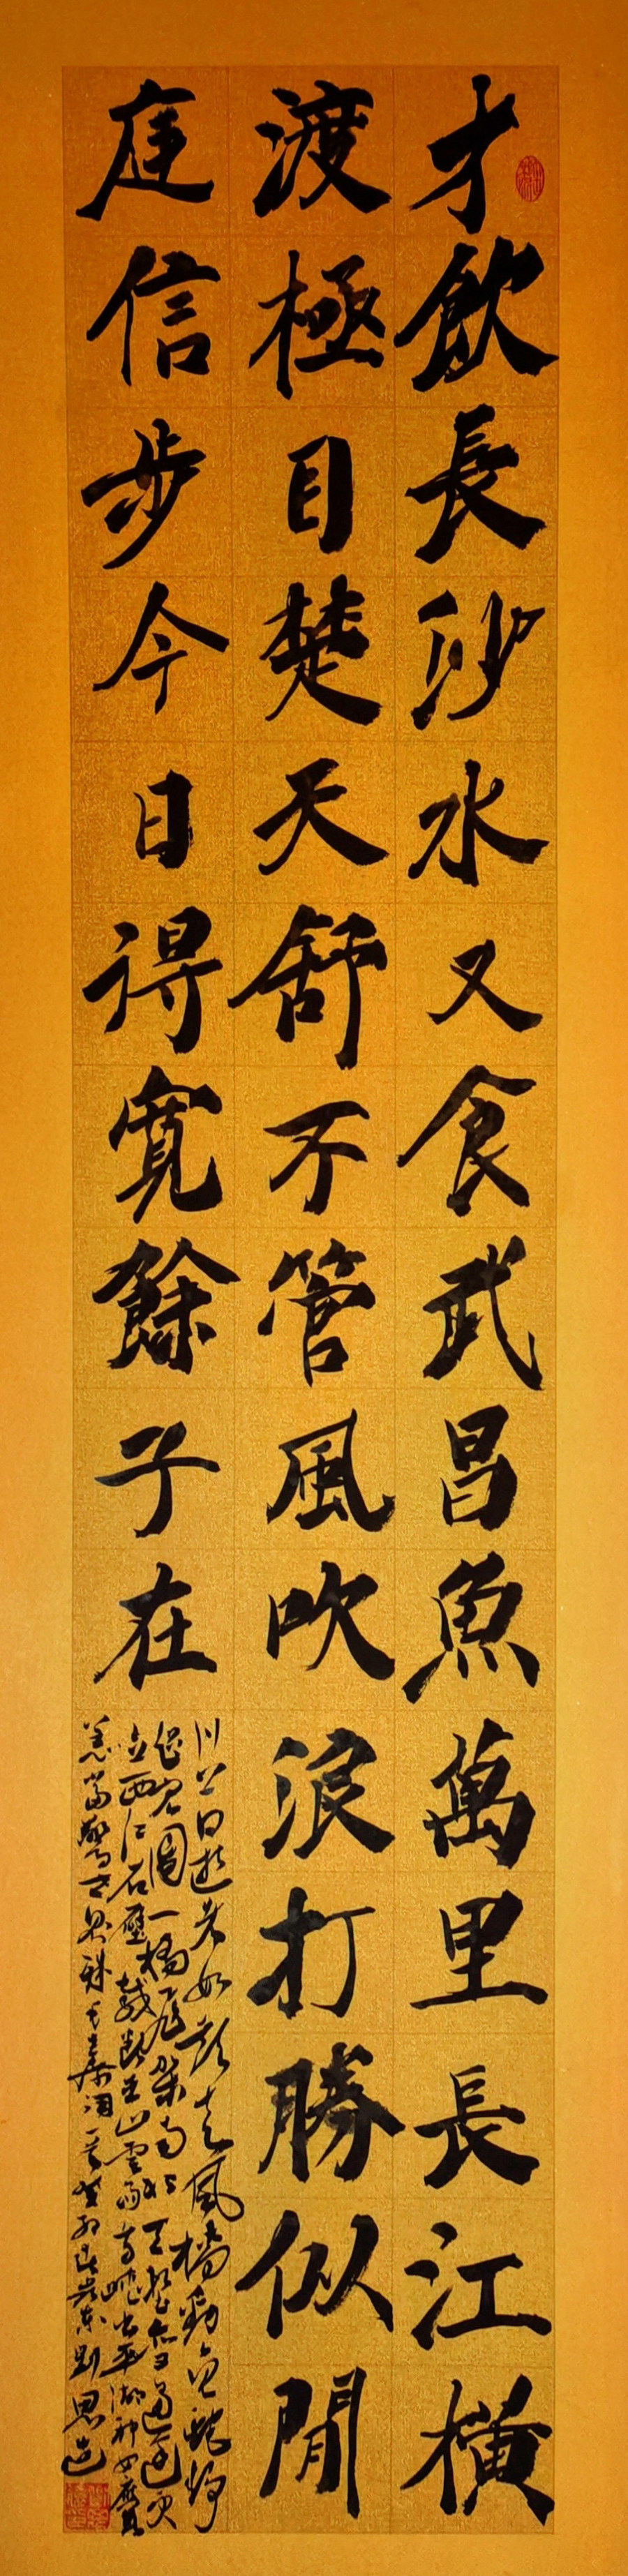 才飲長沙水又食武昌魚萬里長江橫
渡極目楚天舒不管風吹浪打勝似閒
庭信步今日得寬餘子在
川上曰逝者如斯夫風檣動龜蛇靜
起宏圖一橋飛架南北天塹變通途更
立西江石壁截斷巫山雲雨高峽出平湖神女應無
恙當驚世界殊 詞一首